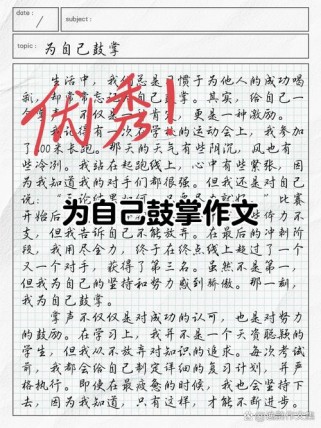 date :
subject :
topic : 为自己鼓掌
生活中，我们总是习惯于为他人的成功喝
彩，却常常忘记为自己鼓掌。其实，给自己一
优秀！
我记得有一次学校的运动会上，我参加
00米长跑。那天的天气有些阴沉，风也有
些冷冽。我站在起跑线上，心中有些紧张，因
为我知道我的对手们都很强。但我还是对自己
说：
比赛
为自己鼓掌作文
开始后
体力不
支，但我告诉自己不能放弃。在最后的冲刺阶
段，我用尽全力，终于在终点线上超过了一个
又一个对手，获得了第三名。虽然不是第一，
但我为自己的坚持和努力感到骄傲。那一刻，
我为自己鼓掌。
掌声不仅仅是对成功的认可，也是对努力
的鼓励。在学习上，我并不是一个天资聪颖的
学生，但我从不放弃对知识的追求。每次考试
前，我都会给自己制定详细的复习计划，并严
格执行。即使在最疲惫的时候，我也会坚持下
去，因为我知道，只有这样，才能不断进步。